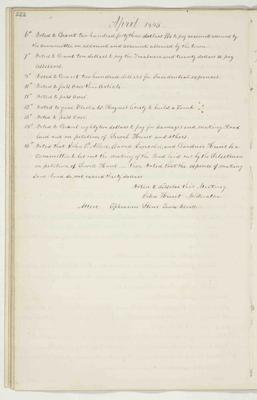 222
April 1848.
6th Voted to Grant two hundred forty three dollars to pay accounts
the committee on accounts and accounts allowed by the town.
7th Voted to Grant ten dollars to pay the Treasurer and twenty dollars to pay
assessors.
Voted to Grant two hundred dollars for Incidental expenses.
Voted to pass over this Article.
Voted to pass over.
Voted to give Charles H. liberty to build a Tomb.
Voted to pass over.
Voted to Grant eighty two dollars to pay for damages and making Road
laid out on petition of Hunt and others.
Voted that John David Lincoln, and Gardner Hunt be a
Committee to let out the making of the Road laid out by the Selectmen
on petition of Hunt. Voted that the expense of making
said Road do not exceed thirty dollars.
Voted to dissolve this Meeting
John Hunt Moderator
Attest Ephraim Stone Town Clerk